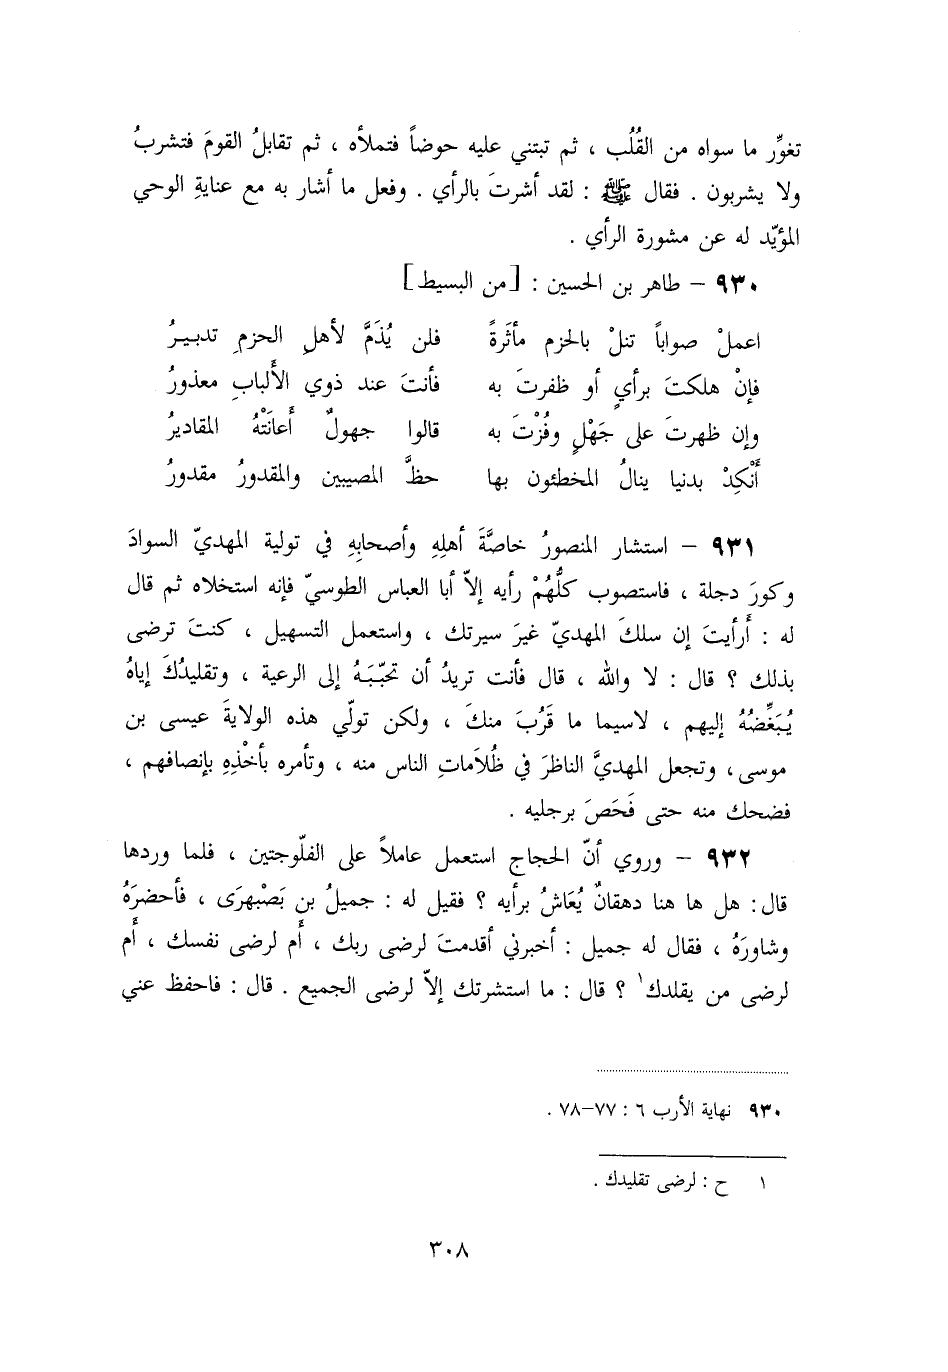 تغوِّر ما سواه من القُلُب ، ثم تبتني عليه حوضاً فتملأه ، ثم تقابلُ القومَ فتشربُ
ولا يشربون . فقال ﷺ : لقد أشرتَ بالرأي . وفعل ما أشار به مع عنايةِ الوحي
المؤيّد له عن مشورة الرأي .
٩٣٠ – طاهر بن الحسين : [من البسيط]
اعملْ صواباً تنلْ بالحزم مأثَرةً فلن يُذَمَّ لأهلِ الحزمِ تدبيرُ
فإنْ هلكتَ برأيٍ أو ظفرتَ به فأنتَ عند ذوي الأَلبابِ معذورُ
وإن ظهرتَ على جَهْلٍ وفُزْتَ به قالوا جهولٌ أَعانَتْهُ المقاديرُ
أَنْكِدْ بدنيا ينالُ المخطئون بها حظَّ المصيبين والمقدورُ مقدورُ
٩٣١ – استشار المنصورُ خاصَّةَ أهلِهِ وأصحابِهِ في تولية المهديّ السوادَ
وكورَ دجلة ، فاستصوب كلُّهُمْ رأيه إلاّ أبا العباس الطوسيّ فإنه استخلاه ثم قال
له : أَرأيتَ إن سلكَ المهديّ غيرَ سيرتك ، واستعمل التسهيل ، كنتَ ترضى
بذلك ؟ قال : لا والله ، قال فأنت تريدُ أن تحبّبَهُ إلى الرعية ، وتقليدُكَ إياهُ
يُبَغِّضُهُ إليهم ، لاسيما ما قَرُبَ منكَ ، ولكن تولّي هذه الولايةَ عيسى بن
موسى ، وتجعل المهديَّ الناظرَ في ظُلاَماتِ الناس منه ، وتأمره بأخْذِهِ بإنصافهم ،
فضحك منه حتى فَحَصَ برجليه .
٩٣٢ – وروي أنّ الحجاج استعمل عاملاً على الفلّوجتين ، فلما وردها
قال : هل ها هنا دهقانٌ يُعَاشُ برأيه ؟ فقيل له : جميلُ بن بَصْبهرَى ، فأحضرَهُ
وشاورَهُ ، فقال له جميل : أخبرني أقدمتَ لرضى ربك ، أَم لرضى نفسك ، أَم
لرضى من يقلدك¹ ؟ قال : ما استشرتك إلاّ لرضى الجميع . قال : فاحفظ عني
٩٣٠ نهاية الأرب ٦ : ٧٧–٧٨ .
١ ح : لرضى تقليدك .
٣٠٨